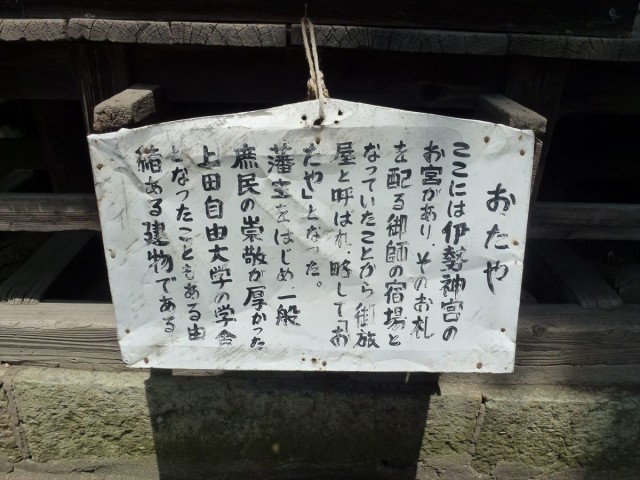 おたや
ここには伊勢神宮の
お宮があり、そのお札
を配る御師の宿場と
なっていたことから御旅
屋と呼ばれ、略して「お
たや」となった。
藩主をはじめ、一般
庶民の崇敬が厚かった
上田自由大学の学舎
となったこともある由
緒ある建物である